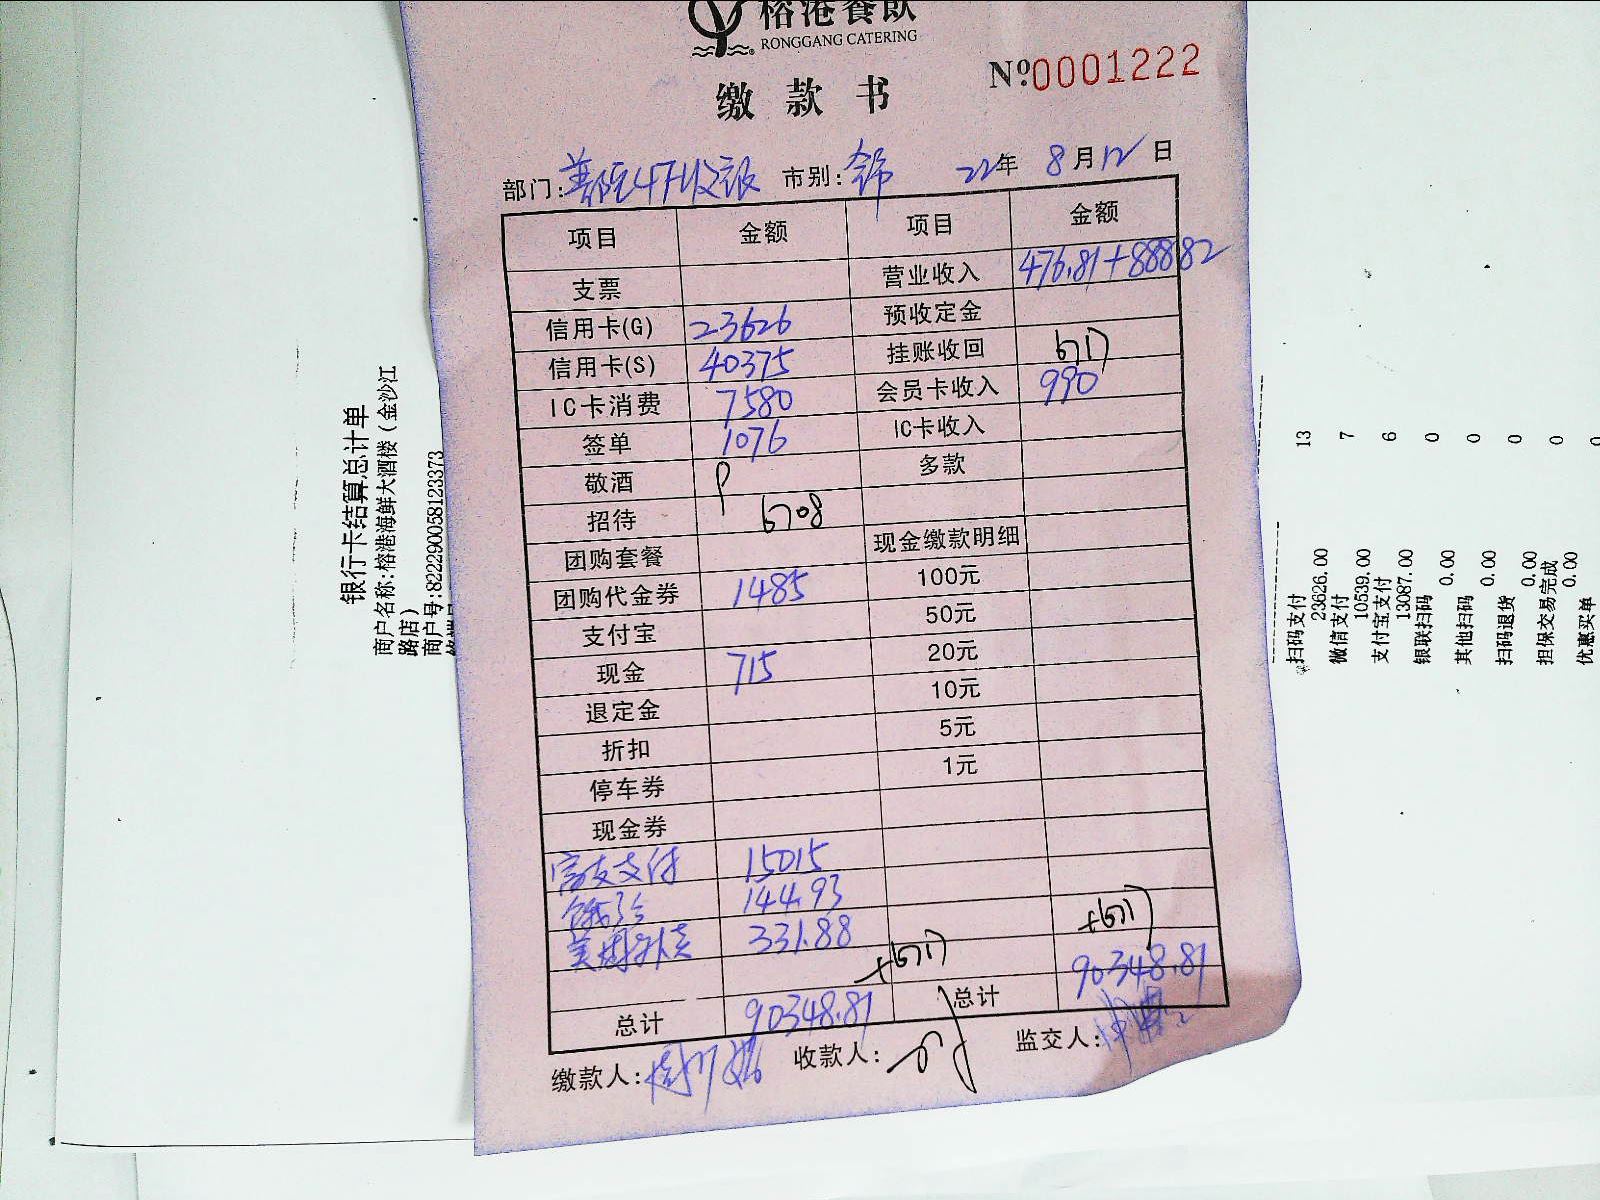 榕港餐飲
RONGGANG CATERING
缴款书
№0001222
部门: 市别: 22年 8月12日
项目 金额 项目 金额
支票 营业收入 476.81+88882
信用卡(G) 23626 预收定金
信用卡(S) 40375 挂账收回
IC卡消费 7580 会员卡收入 990
签单 1076 IC卡收入
敬酒 多款
招待
团购套餐 现金缴款明细
团购代金券 1485 100元
支付宝 50元
现金 715 20元
退定金 10元
折扣 5元
停车券 1元
现金券
支付 15015
144.93
美团外卖 331.88
总计 90348.81 总计 90348.81
缴款人: 收款人: 监交人:
银行卡结算总计单
商户名称:榕港海鲜大酒楼(金沙江
路店)
商户号:822290058123373
扫码支付 13
23626.00
微信支付 7
10539.00
支付宝支付 6
13087.00
银联扫码 0
0.00
其他扫码 0
0.00
扫码退货 0
0.00
担保交易完成 0
0.00
优惠买单 0